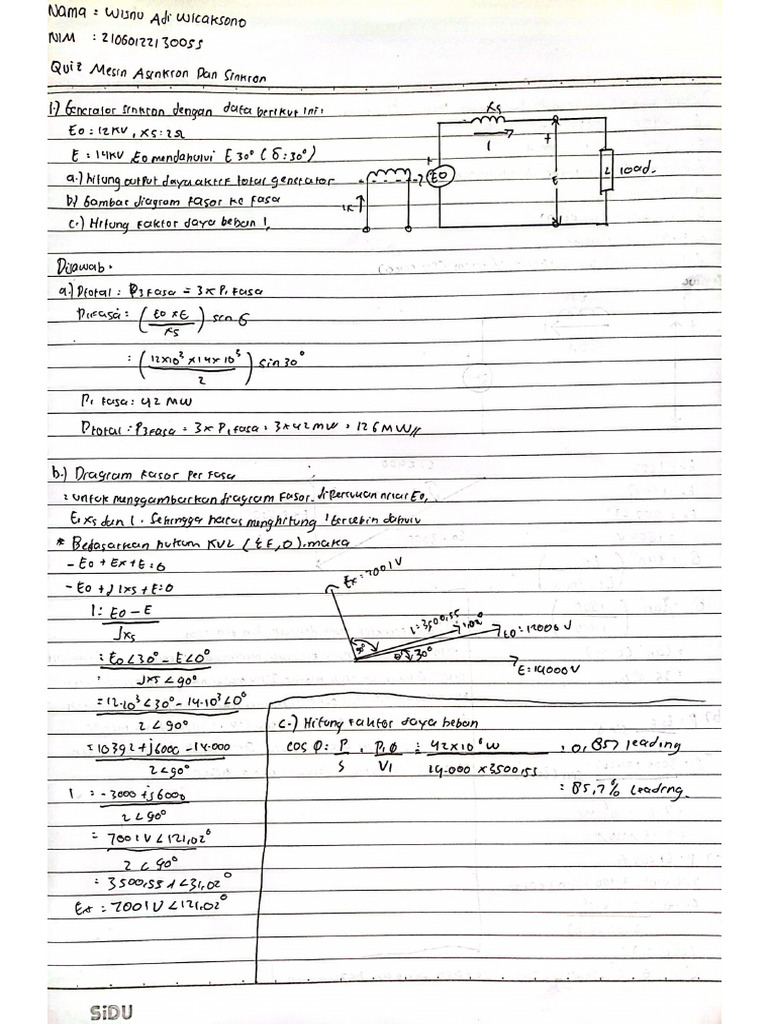 Nama : Wisnu Adi Wicaksono
NIM : 21060122130055
Quiz Mesin Asinkron Dan Sinkron
1.) Generator sinkron dengan data berikut ini :
E0 : 12KV, Xs : 2Ω
E : 14KV E0 mendahului E 30° (δ : 30°)
a.) Hitung output daya aktif total generator
b) Gambar diagram fasor ke fasa
c.) Hitung faktor daya beban 1,
Xs
I
+
+
E0
E
L
load.
Ix
Dijawab :
a.) Ptotal : P3 Fasa = 3x P1 Fasa
P1 Fasa : (E0 x E / xs) sin δ
: (12x10³ x 14x10³ / 2) sin 30°
P1 Fasa : 42 MW
Ptotal : P3 Fasa = 3x P1 Fasa = 3x42 MW = 126 MW //
b.) Diagram Fasor Per Fasa
: untuk menggambarkan diagram Fasor. diperlukan nilai E0,
E, xs dan I. Sehingga harus menghitung I terlebih dahulu
* Bedasarkan hukum KVL (ΣE,0). maka
- E0 + Ex + E = 0
- E0 + j Ixs + E = 0
I : E0 - E
Jxs
: E0 <30° - E<0°
Jxs <90°
= 12.10³ <30° - 14.10³ <0°
2 <90°
= 10392 + j6000 - 14.000
2 <90°
I : -3000 + j6000
2 <90°
= 7001 V <121,02°
2 <90°
= 3500,55 A <31,02°
Ex = 7001 V <121,02°
Ex = 7001 V
I = 3500,55
1,02°
E0 = 12000 V
30°
E = 14000 V
c.) Hitung faktor daya beban
cos φ : P , P1φ = 42x10⁶ W : 0,857 leading
S VI 14.000 x 3500,55
: 85,7% leading.
SiDU